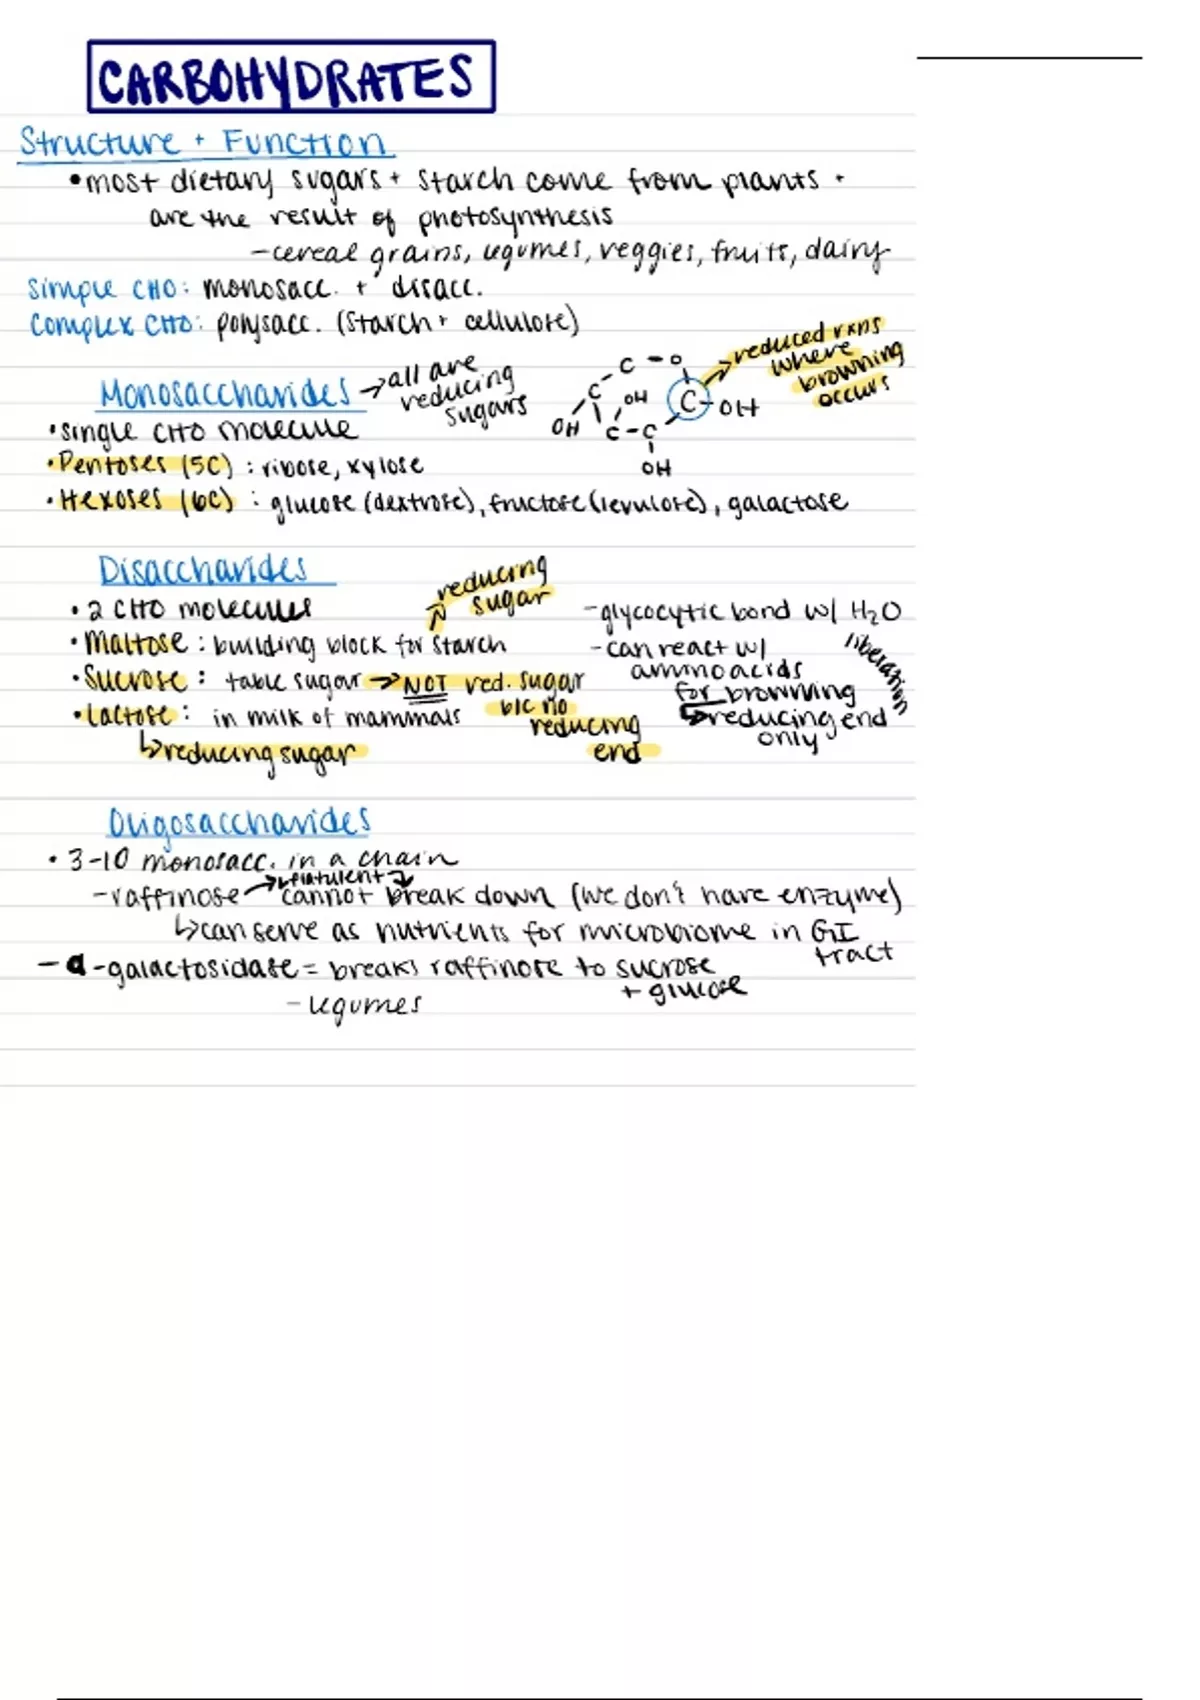 CARBOHYDRATES
Structure + Function
• most dietary sugars + starch come from plants +
are the result of photosynthesis
- cereal grains, legumes, veggies, fruits, dairy
simple CHO: monosacc. + disacc.
Complex CHO: polysacc. (starch + cellulose)
Monosaccharides → all are reducing sugars
C - O
C
C - OH
OH
OH
C - C
OH
→ reduced rxns where browning occurs
• single CHO molecule
• Pentoses (5C) : ribose, xylose
• Hexoses (6C) : glucose (dextrose), fructose (levulose), galactose
Disaccharides
• 2 CHO molecules
reducing sugar
• Maltose : building block for starch
• Sucrose : table sugar → NOT red. sugar
b/c no reducing end
• Lactose : in milk of mammals
↳ reducing sugar
- glycocytic bond w/ H2O liberation
- can react w/ amino acids for browning
↳ reducing end only
Oligosaccharides
• 3-10 monosacc. in a chain
- raffinose → cannot break down (we don't have enzyme)
↳ flatulent
↳ can serve as nutrients for microbiome in GI tract
- a-galactosidase = breaks raffinose to sucrose + glucose
- legumes